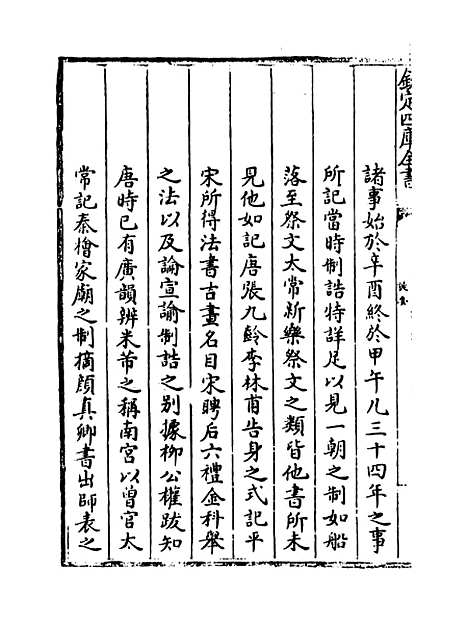 欽定四庫全書
諸事始於辛酉終於甲午凡三十四年之事
所記當時制誥特詳足以見一朝之制如船
落至祭文太常新樂祭文之類皆他書所未
見他如記唐張九齡李林甫告身之式記平
宋所得法書古畫名目宋聘后六禮金科舉
之法以及論宣諭制誥之別據柳公權跋知
唐時已有廣韻辨米芾之稱南宮以曾官太
常記秦檜家廟之制摘顔真卿書出師表之